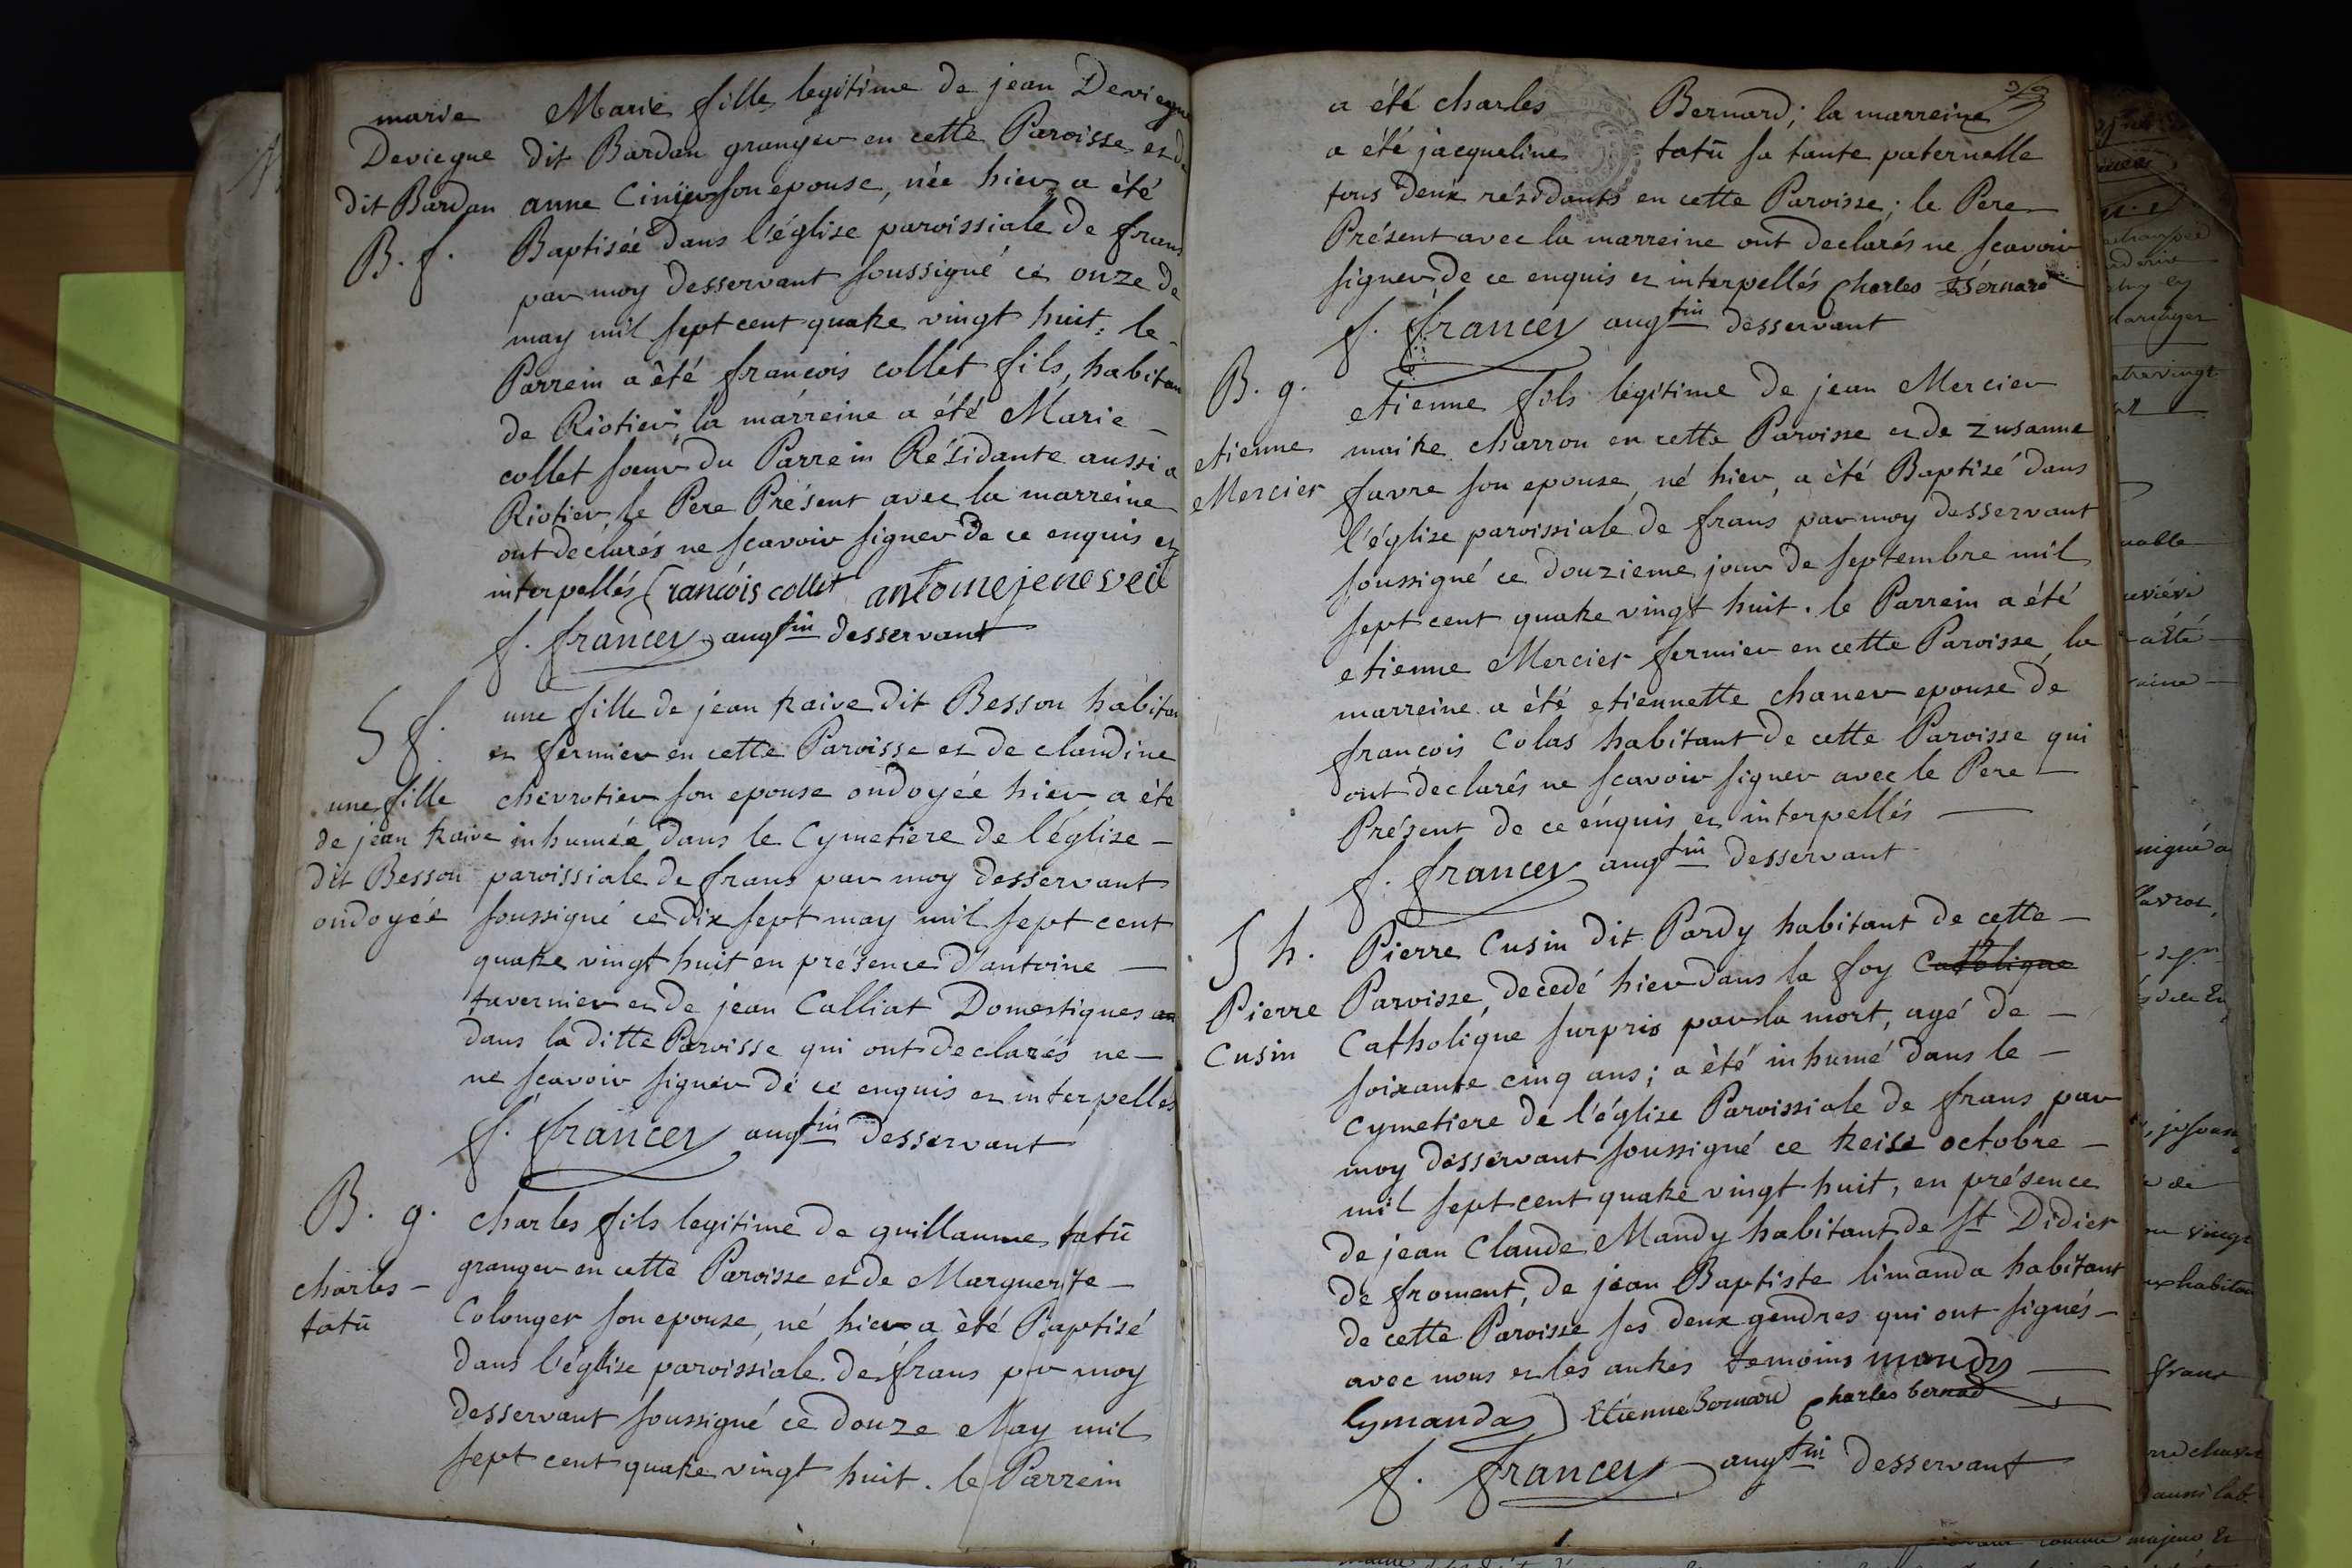 marie
Deviegne
dit Bardan
B. f.
Marie fille legitime de jean Deviegne
dit Bardan granger en cette Paroisse et de
anne Cinier son epouse, née hier a été
Baptisée dans l'église paroissiale de frans
par moy desservant soussigné ce onze de
may mil sept cent quatre vingt huit: le
Parrein a été francois collet fils, habitan
de Riotier, la marreine a été Marie
collet sœur du Parrein Résidante aussi a
Riotier, le Pere Présent avec la marreine
ont declarés ne scavoir signer de ce enquis et
interpellés francois collet antoine jenevei
f. francey aug.tin desservant
S f.
une fille
de jean traive
dit Besson
ondoyée
une fille de jean traive dit Besson habitan
et fermier en cette Paroisse et de claudine
chevrotier son epouse ondoyée hier a été
inhumée dans le Cymetiere de l'église
paroissiale de frans par moy desservant
soussigné ce dix sept may mil sept cent
quatre vingt huit en présence d'antoine
tavernier et de jean Calliat Domestiques
dans la ditte Paroisse qui ont declarés ne
ne scavoir signer de ce enquis et interpellés
f. francey aug.tin desservant
B. g.
charles
tatû
charles fils legitime de guillaume tatû
granger en cette Paroisse et de Marguerite
Colonger son epouse, né hier a été Baptisé
dans l'église paroissiale de frans par moy
desservant soussigné ce douze May mil
sept cent quatre vingt huit. le Parrein
a été charles Bernard; la marreine
a été jacqueline tatû sa tante paternelle
tous deux résidants en cette Paroisse; le Pere
Présent avec la marreine ont declarés ne scavoir
signer de ce enquis et interpellés Charles Bernard
f. francey aug.tin desservant
B. g.
etienne
Mercier
etienne fils legitime de jean Mercier
maitre charron en cette Paroisse et de Zusanne
favre son epouse, né hier, a été Baptisé dans
l'église paroissiale de frans par moy desservant
soussigné ce douzieme jour de septembre mil
sept cent quatre vingt huit. le Parrein a été
etienne Mercier fermier en cette Paroisse, la
marreine a été etiennette chaner epouse de
francois Colas habitant de cette Paroisse qui
ont declarés ne scavoir signer avec le Pere
Présent de ce enquis et interpellés
f. francey aug.tin desservant
S h.
Pierre
Cusin
Pierre Cusin dit Pardy habitant de cette
Paroisse, decedé hier dans la foy Catholique
Catholique surpris par la mort, agé de
soixante cinq ans; a été inhumé dans le
Cymetiere de l'église Paroissiale de frans par
moy desservant soussigné ce treise octobre
mil sept cent quatre vingt huit, en présence
de jean Claude Mandy habitant de St Didier
de froment, de jean Baptiste limanda habitant
de cette Paroisse ses deux gendres qui ont signés
avec nous et les autres temoins mondy
lymandas Etienne Bernard Charles bernad
f. francey aug.tin desservant